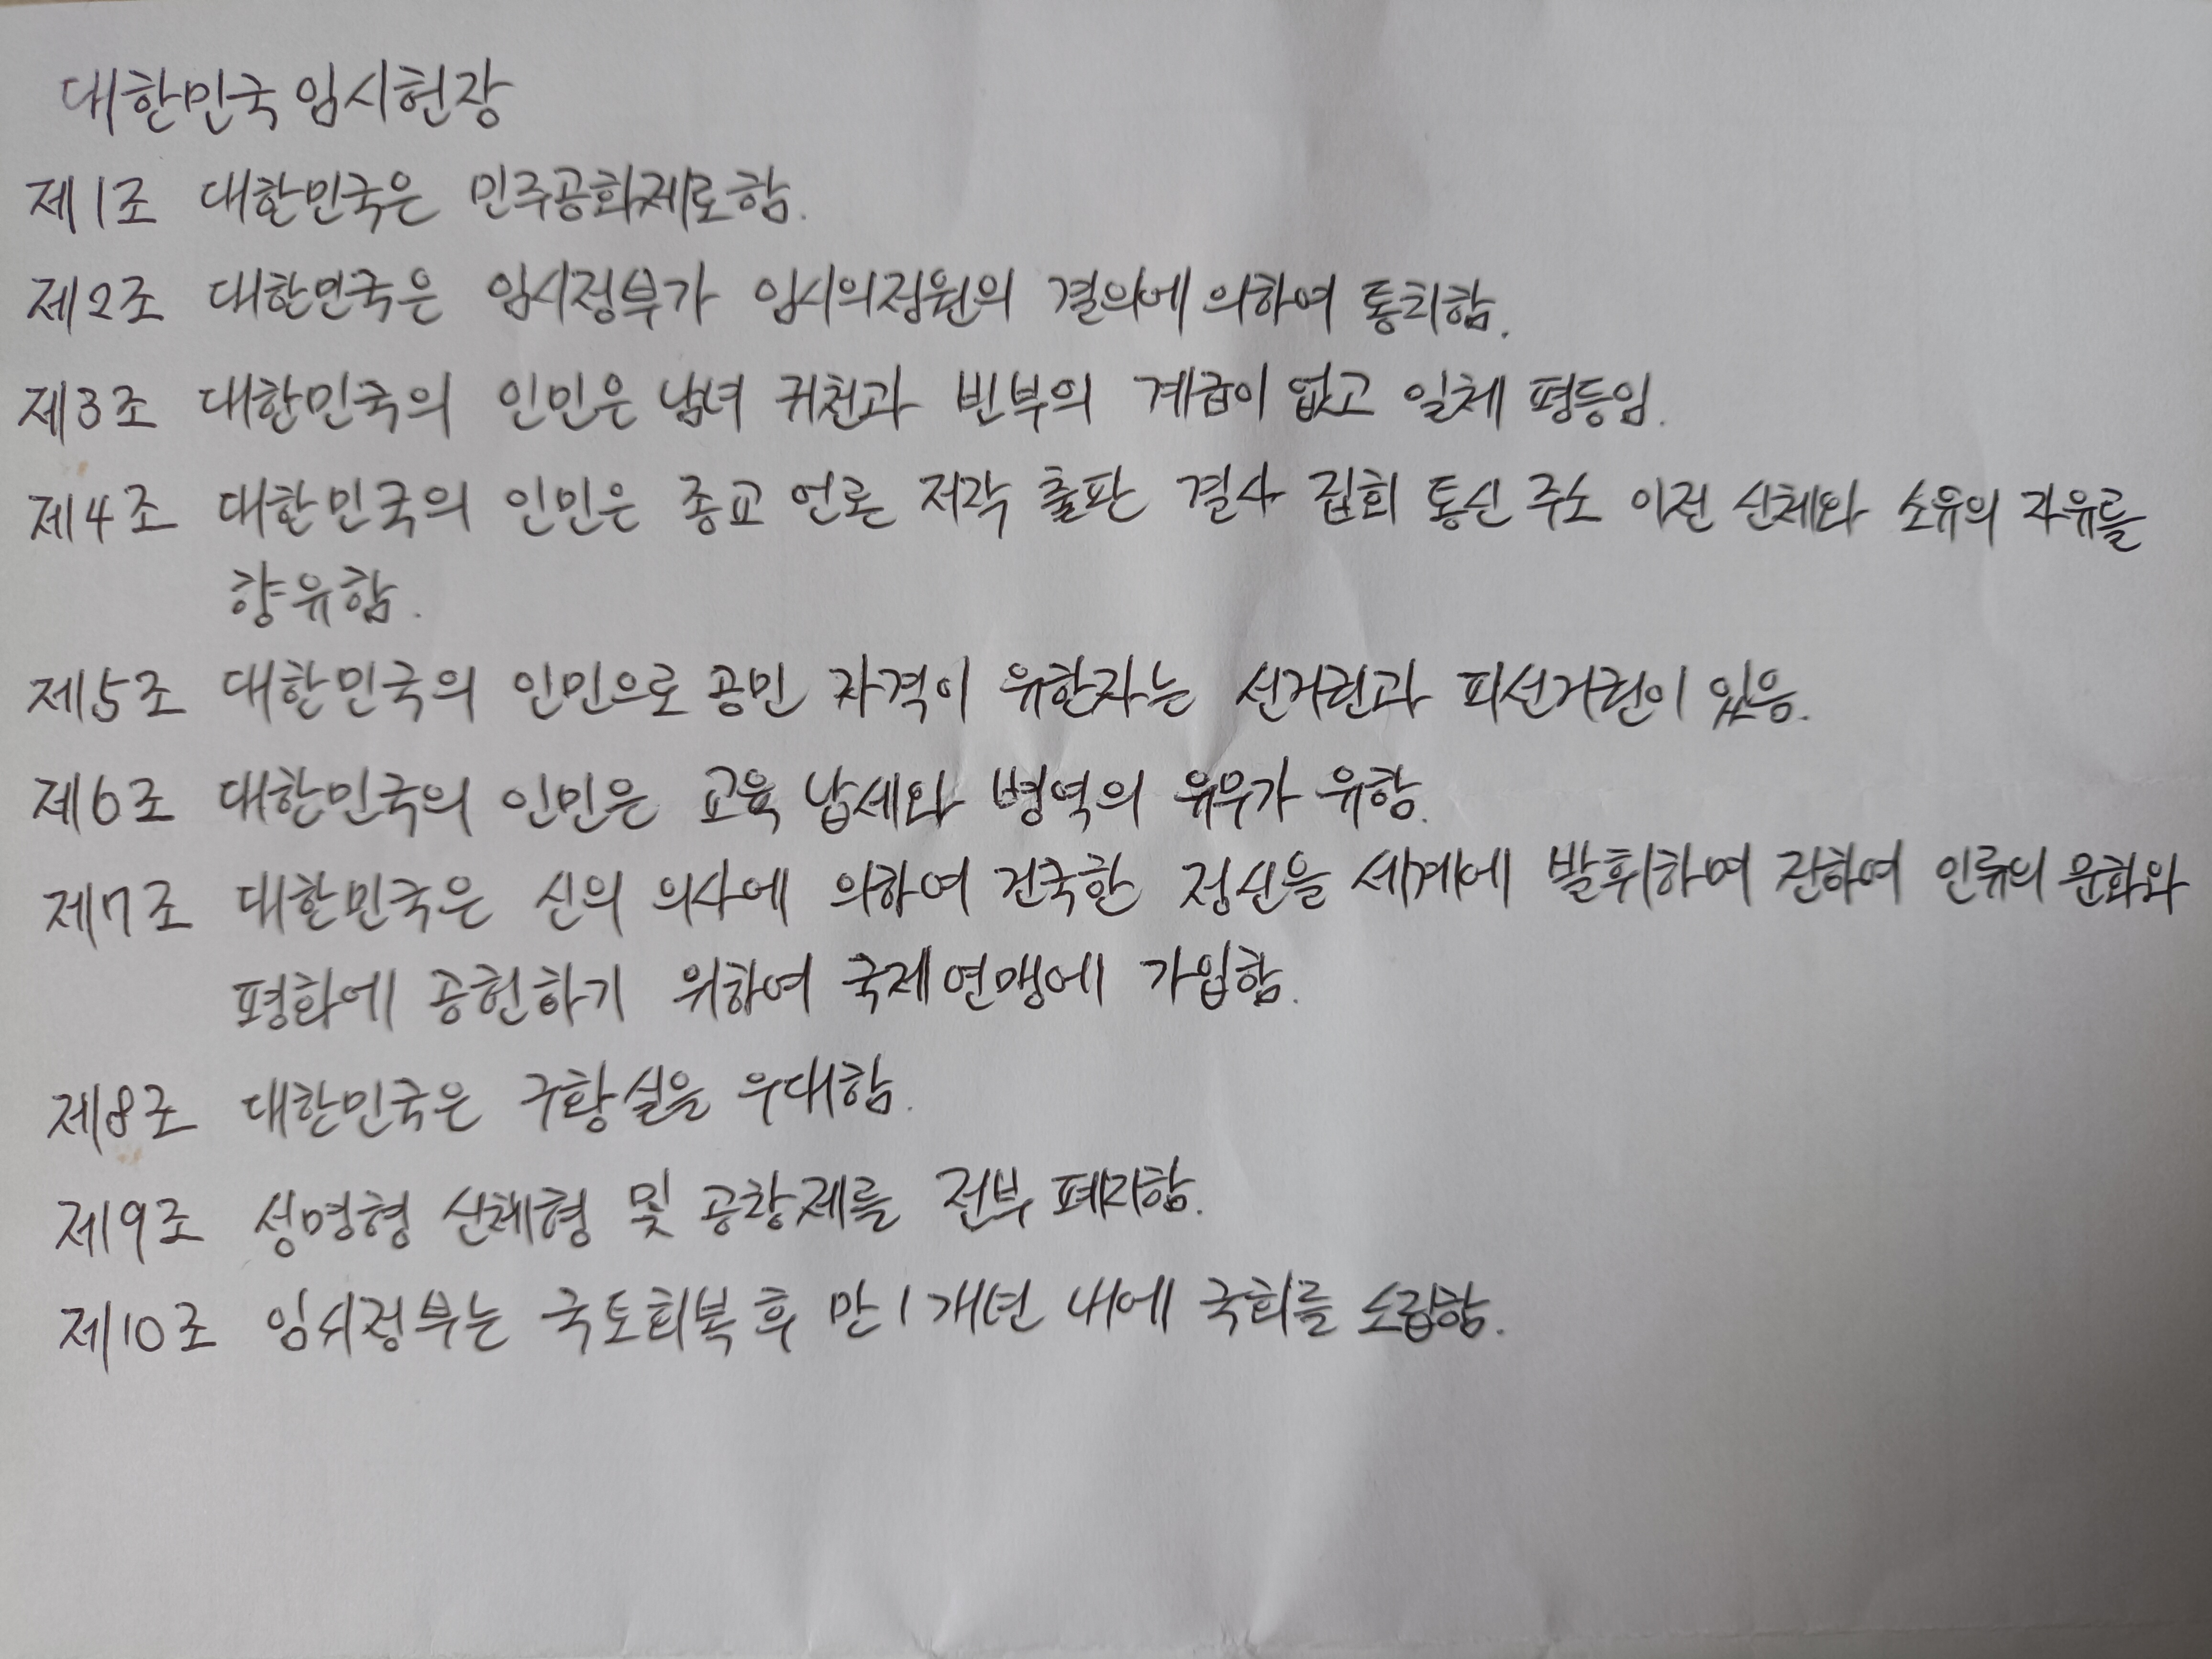 대한민국임시헌장
제1조 대한민국은 민주공화제로함.
제2조 대한민국은 임시정부가 임시의정원의 결의에 의하여 통치함.
제3조 대한민국의 인민은 남녀 귀천과 빈부의 계급이 없고 일체 평등임.
제4조 대한민국의 인민은 종교 언론 저작 출판 결사 집회 통신 주소 이전 신체와 소유의 자유를
향유함.
제5조 대한민국의 인민으로 공민 자격이 유한자는 선거권과 피선거권이 있음.
제6조 대한민국의 인민은 교육 납세와 병역의 가 유함.
제7조 대한민국은 신의 의사에 의하여 건국한 정신을 세계에 발휘하여 진하여 인류의 문화와
평화에 공헌하기 위하여 국제연맹에 가입함.
제8조 대한민국은 구황실을 우대함.
제9조 생명형 신체형 및 공창제를 전부 폐지함.
제10조 임시정부는 국토회복 후 만1개년 내에 국회를 소집함.